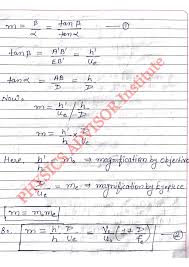 m = β/α = tanβ/tanα —①
tanβ = A'B'/EB' = h'/ue
tanα = AB/D = h/D
Now,
m = h'/ue / h/D
Here, h'/h = mo ⇒ magnification by objective
D/ue = me ⇒ magnification by eyepiece
m = mo me
So, m = h'/h D/ue = Vo/ (1+D/fe) —②
PHYSICS ADVISOR Institute